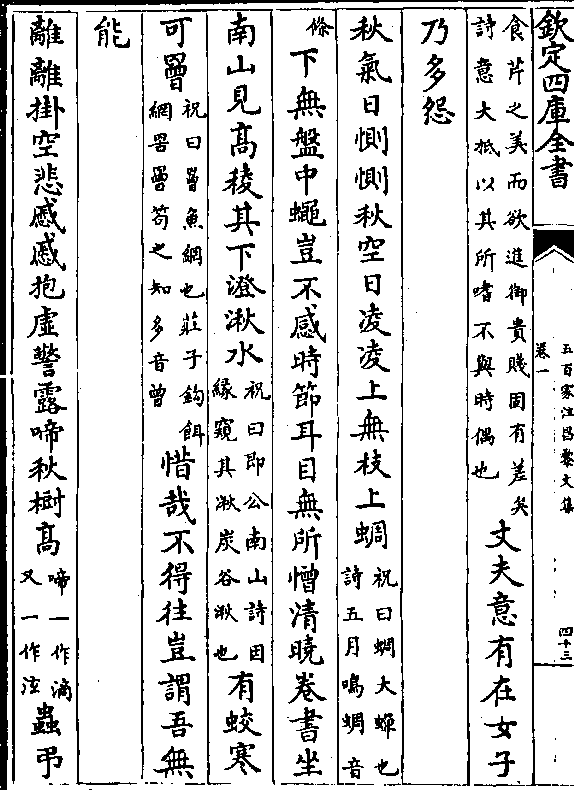 欽定四庫全書
五百家注昌黎文集
卷一
四十三
食芹之美而欲進御貴賤固有差矣
詩意大抵以其所嗜不與時偶也
丈夫意有在女子
乃多怨
秋氣日惻惻秋空日凌凌上無枝上蜩
祝曰蜩大蟬也
詩五月鳴蜩音
條
下無盤中蠅豈不感時節耳目無所憎清曉卷書坐
南山見高稜其下澄湫水
祝曰即公南山詩因
縁窺其湫炭谷湫也
有蛟寒
可罾
祝曰罾魚網也莊子鈎餌
網罟罾笱之知多音曾
惜哉不得往豈謂吾無
能
離離掛空悲慼慼抱虛警露啼秋樹高
啼一作滴
又一作泫
蟲弔